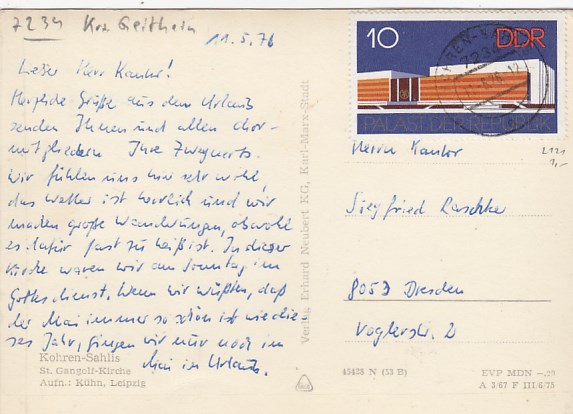 7234 Krs Geithain
11.5.76
Lieber Herr Kantor!
Herzliche Grüße aus dem Urlaub
senden Ihnen und allen Chor-
mitgliedern Ihre
Wir fühlen uns hier sehr wohl,
das Wetter ist herrlich und wir
machen große Wanderungen, obwohl
es dafür fast zu heiß ist. In dieser
Kirche waren wir am Sonntag im
Gottesdienst. Wenn wir wüßten, daß
der Mai immer so schön ist wie die-
ses Jahr, gingen wir nur noch im
Mai in Urlaub.
Kohren-Sahlis
St. Gangolf-Kirche
Aufn.: Kühn, Leipzig
Verlag Erhard Neubert KG, Karl-Marx-Stadt
10 DDR
PALAST DER REPUBLIK
KOHREN-SAHLIS
7234
2121
1,-
Herrn Kantor
Siegfried Raschke
8053 Dresden
Voglerstr. 2
45428 N (53 B)
EVP MDN -,20
A 3/67 F III/6/75